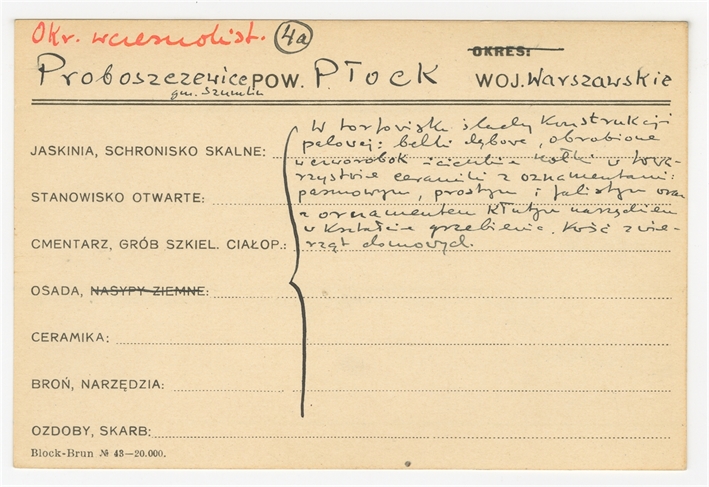 Okr. wczesnohist. 4a
OKRES:
Proboszczewice POW. Płock WOJ. Warszawskie
gm. Szumlin
W torfowisku ślady konstrukcji
palowej: belki dębowe, obrobione
w czworobok i cienkie kołki w towa-
JASKINIA, SCHRONISKO SKALNE:
rzystwie ceramiki z oznamentami:
pasmowym, prostym i falistym oraz
STANOWISKO OTWARTE:
z ornamentem kłutym narzędziem
w kształcie grzebienia. Kość zwie-
CMENTARZ, GRÓB SZKIEL. CIAŁOP.:
rząt domowych.
OSADA, NASYPY ZIEMNE:
CERAMIKA:
BROŃ, NARZĘDZIA:
OZDOBY, SKARB:
Block-Brun № 43—20.000.